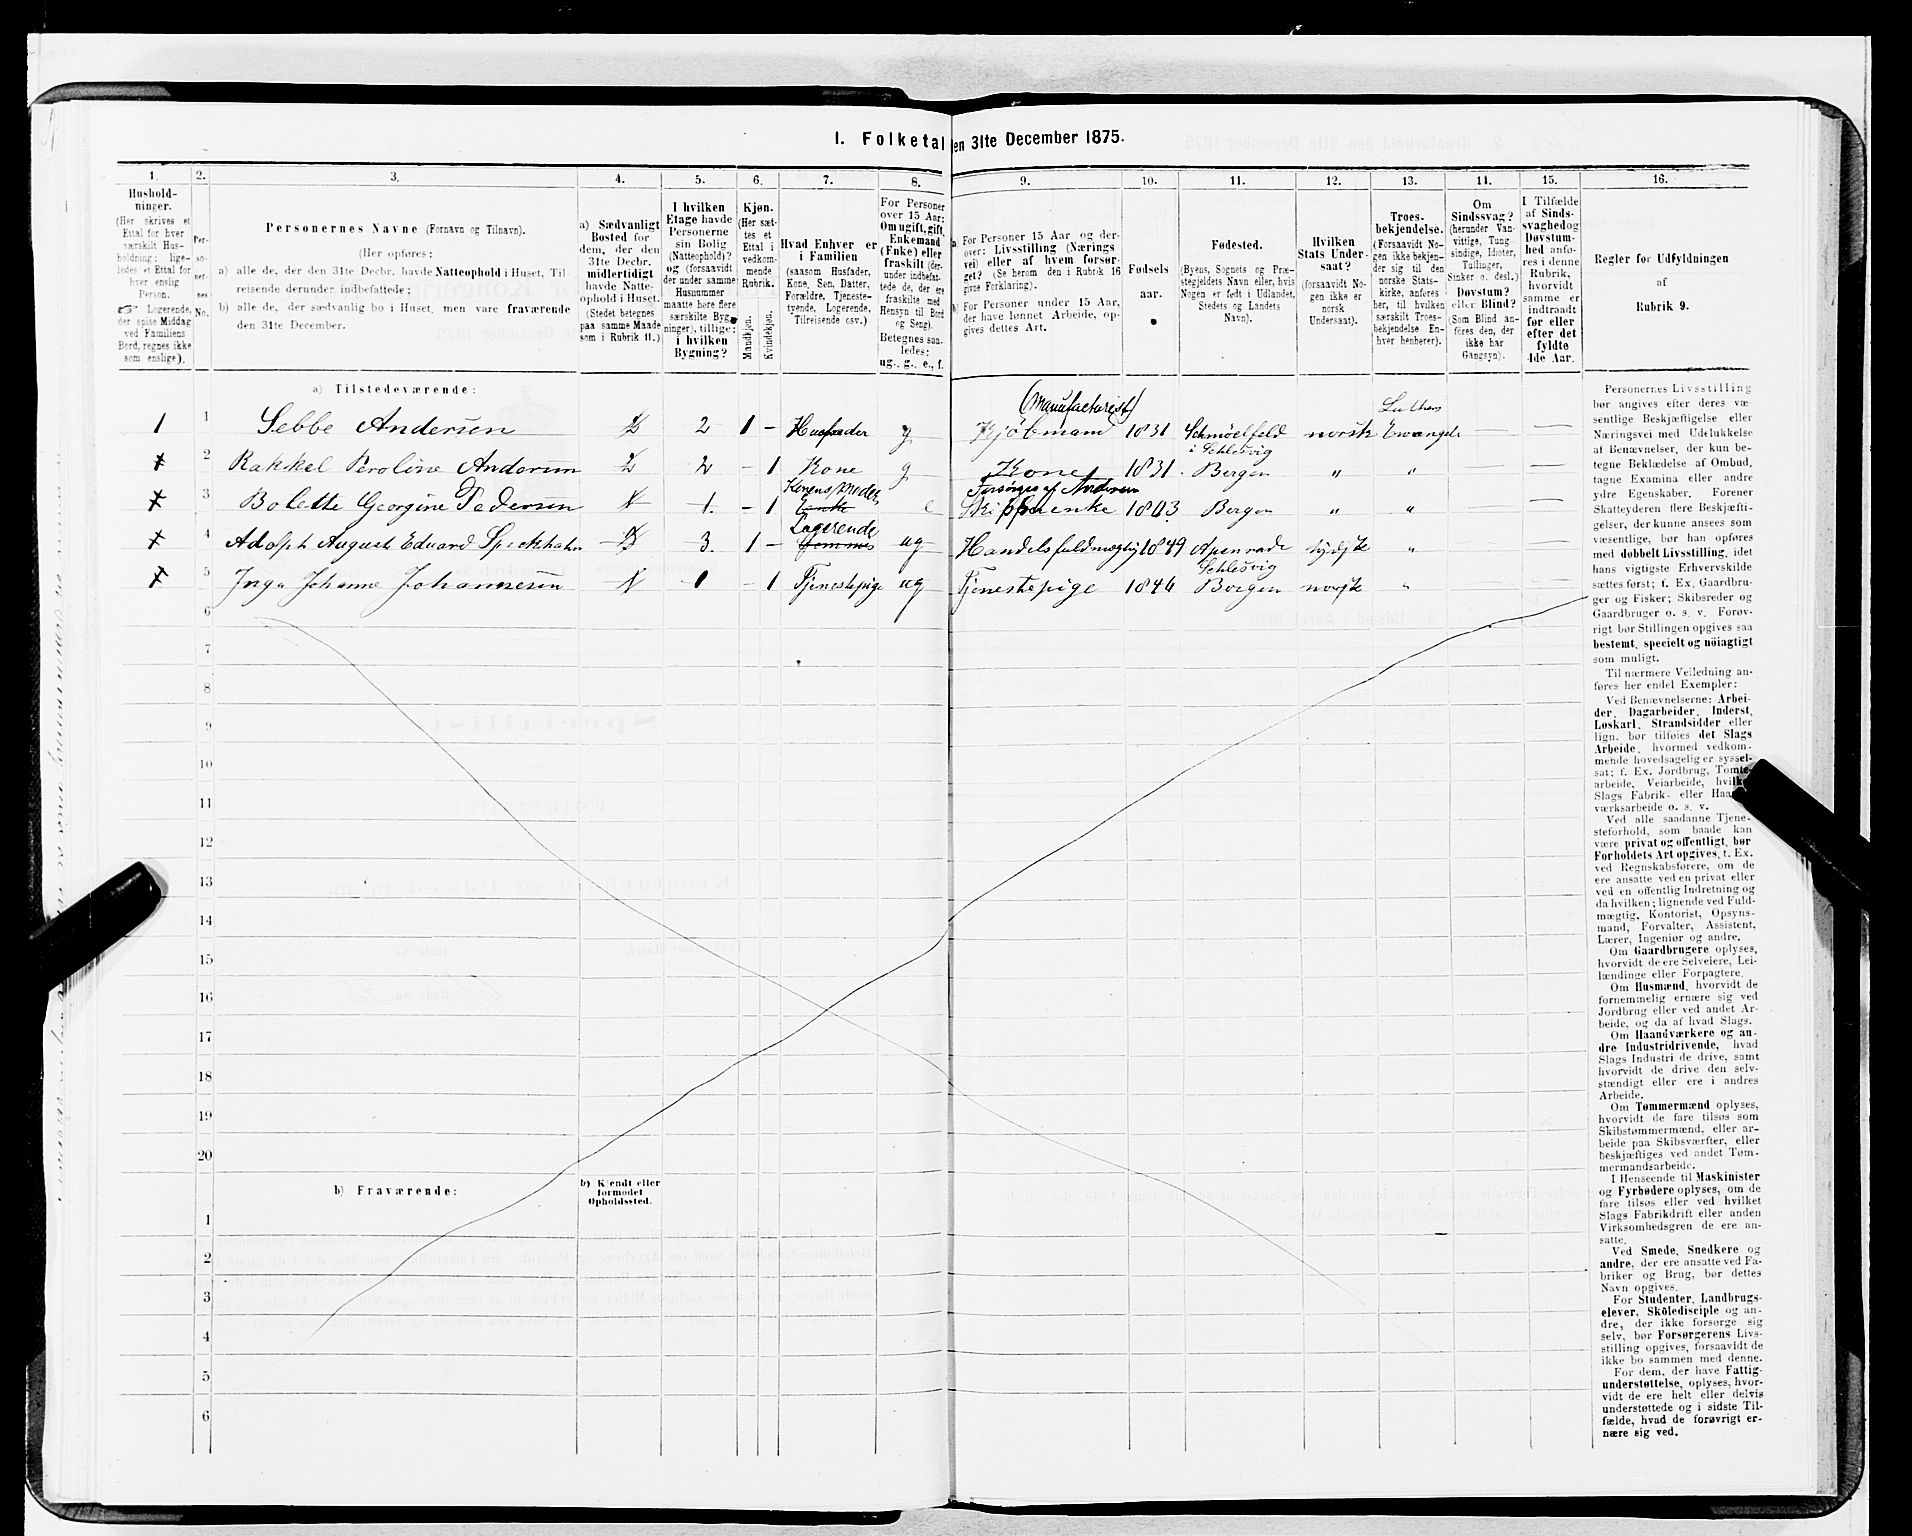 1. Folketal den 31te December 1875.
1. 2. 3. 4. 5. 6. 7. 8. 9. 10. 11. 12. 13. 14. 15. 16.
Hushold-
ninger.
(Her skrives et
Ettal for hver
særskilt Hus-
holdning; lige-
ledes et Ettal for
hver enslig
Person.
☞ Logerende,
der spise Middag
ved Familiens
Bord, regnes ikke
som enslige).
Per-
so-
ner-
nes
No.
Personernes Navne (Fornavn og Tilnavn).
(Her opføres:
a) alle de, der den 31te Decbr. havde Natteophold i Huset, Til-
reisende derunder indbefattede;
b) alle de, der sædvanlig bo i Huset, men vare fraværende
den 31te December.
a) Sædvanligt
Bosted for
dem, der den
31te Decbr.
midlertidigt
havde Natte-
ophold i Huset.
(Stedet betegnes
paa samme Maade
som i Rubrik 11.)
I hvilken
Etage havde
Personerne
sin Bolig
(Natteophold)?
og (forsaavidt
der under samme
Husnummer
maatte høre flere
særskilte Byg-
ninger), tillige:
i hvilken
Bygning?
Kjøn.
(Her sæt-
tes et
Ettal i
vedkom-
mende
Rubrik.
Mandkjøn.
Kvindekjøn.
Hvad Enhver er
i Familien
(saasom Husfader,
Kone, Søn, Datter,
Forældre, Tjeneste-
tyende, Logerende,
Tilreisende osv.)
For Personer
over 15 Aar:
Om ugift, gift,
Enkemand
(Enke) eller
fraskilt (der-
under indbefat-
tede de, der ere
fraskilte med
Hensyn til Bord
og Seng).
Betegnes saa-
ledes:
ug., g., e., f.
a For Personer 15 Aar og der-
over: Livsstilling (Nærings
vei) eller af hvem forsør-
get? (Se herom den i Rubrik 16
givne Forklaring).
b) For Personer under 15 Aar,
der have lønnet Arbeide, op-
gives dettes Art.
Fødsels
aar.
Fødested.
(Byens, Sognets og Præ-
stegjeldets Navn eller, hvis
Nogen er født i Udlandet,
Stedets og Landets
Navn).
Hvilken
Stats Under-
saat?
(forsaavidt No-
gen ikke er
norsk
Undersaat).
Troes-
bekjendelse.
(Forsaavidt No-
gen ikke bekjen-
der sig til den
norske Stats-
kirke, anføres
her, til hvilken
særskilt Troes-
bekjendelse En-
hver henhører).
Om
Sindssvag?
(herunder Van-
vittige, Tung
sindige, Idioter,
Tullinger,
Sinker o. desl.)
Døvstum?
eller Blind?
(Som Blind an-
føres den, der
ikke har
Gangsyn).
I Tilfælde
af Sinds-
svaghed og
Døvstum-
hed anfø-
res i denne
Rubrik,
hvorvidt
samme er
indtraadt
før eller
efter det
fyldte
4de Aar.
Regler for Udfyldningen
af
Rubrik 9.
a) Tilstedeværende:
(Manufacturist) Luthers
1 1 Sebbe Andersen 2 1 – Husfader g Kjøbmand 1831 Schmöelfeld i Schlesvig norsk Evangels –
2 Rakkel Peroline Andersen 2 – 1 Kone g Kone 1831. Bergen " " –
Konens Moder Forsørges af Andersen
3 Bolette Georgine Pedersen 1. – 1 Enke e Skipperenke 1803. Bergen " " –
Logerende
4 Adolph August Eduard Speckhahn 3. 1 – ug Handelsfuldmægtig 1849 Apenrade Schlesvig tydsk " –
5 Inga Johanne Johannesen 1 – 1 Tjenestepige ug Tjenestepige 1846 Bergen norsk " –
6
7
8
9
10
11
12
13
14
15
16
17
18
19
20
b) Fraværende:
b) Kjendt eller
formodet
Opholdssted.
1
2
3
4
5
6
Personernes Livsstilling
bør angives efter deres væ-
sentlige Beskjæftigelse eller
Næringsvei med Udelukkelse
af Benævnelser, der kun be-
tegne Beklædelse af Ombud,
tagne Examina eller andre
ydre Egenskaber. Forener
Skatteyderen flere Beskjæfti-
gelser, der kunne ansees som
væsentlige, bør han opføres
med dobbelt Livsstilling, idet
hans vigtigste Erhvervskilde
sættes først; f. Ex. Gaardbru-
ger og Fisker; Skibsreder og
Gaardbruger o. s. v. Forøv-
rigt bør Stillingen opgives saa
bestemt, specielt og nöiagtigt
som muligt.
Til nærmere Veiledning an-
føres her endel Exempler:
Ved Benævnelserne: Arbei-
der, Dagarbeider, Inderst,
Løskarl, Strandsidder eller
lign. bør tilføies det Slags
Arbeide, hvormed vedkom-
mende hovedsagelig er syssel-
sat; f. Ex. Jordbrug, Tomte-
arbeide, Veiarbeide, hvilket
Slags Fabrik- eller Haand-
værksarbeide o. s. v.
Ved alle saadanne Tjene-
steforhold, som baade kan
være privat og offentligt, bør
Forholdets Art opgives, t. Ex.
ved Regnskabsførere, om de
ere ansatte ved en privat eller
ved en offentlig Indretning og
da hvilken; lignende ved Fuld-
mægtig, Kontorist, Opsyns-
mand, Forvalter, Assistent,
Lærer, Ingeniør og andre.
Om Gaardbrugere oplyses,
hvorvidt de ere Selveiere, Lei-
lændinge eller Forpagtere.
Om Husmænd, hvorvidt de
fornemmelig ernære sig ved
Jordbrug eller ved andet Ar-
beide, og da af hvad Slags.
Om Haandværkere og an-
dre Industridrivende, hvad
Slags Industri de drive, samt
hvorvidt de drive den selv-
stændigt eller ere i andres
Arbeide.
Om Tømmermænd oplyses,
hvorvidt de fare tilsøs som
Skibstømmermænd, eller ar-
beide paa Skibsværfter, eller
beskjæftiges ved andet Tøm-
mermandsarbeide.
I Henseende til Maskinister
og Fyrbødere oplyses, om de
fare tilsøs eller ved hvilket
Slags Fabrikdrift eller anden
Virksomhedsgren de ere an-
satte.
Ved Smede, Snedkere og
andre, der ere ansatte ved Fa-
briker og Brug, bør dettes
Navn opgives.
For Studenter, Landbrugs-
elever, Skoledisciple og an-
dre, der ikke forsørge sig
selv, bør Forsørgerens Livs-
stilling opgives, forsaavidt de
ikke bo sammen med denne.
For dem, der have Fattig-
understøttelse, oplyses, hvor-
vidt de ere helt eller delvis
understøttede og i sidste Til-
fælde, hvad de forøvrigt er-
nære sig ved.